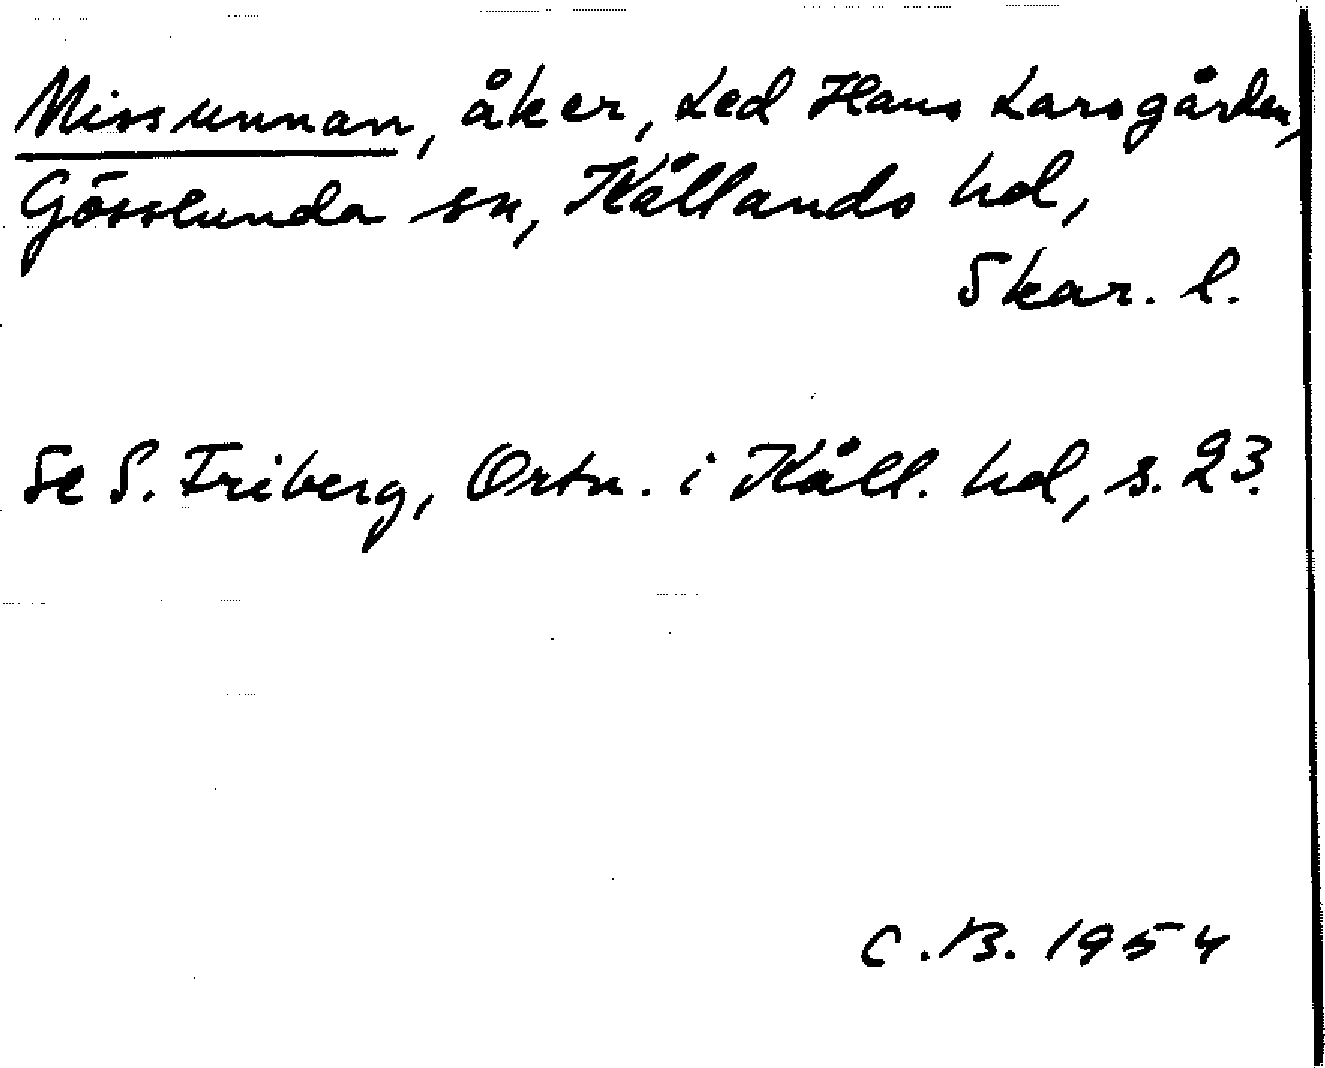 Missunnan, åker, Led Hans Larsgården,
Gösslunda sn, Kållands hd,
Skar. l.
Se S. Friberg, Ortn. i Kåll. hd, s. 23.
C. B. 1954